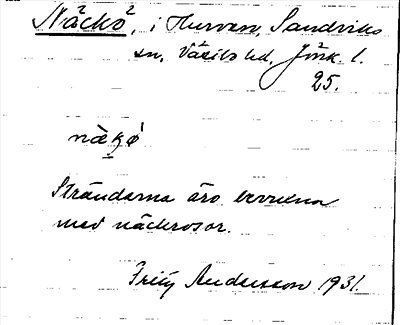 Näckö, i Hurven, Sandviks
sn, Västbo hd, Jönk. l.
25.
näkö
Stränderna äro bevuxna
med näckrosor.
Fritz Andersson 1931.